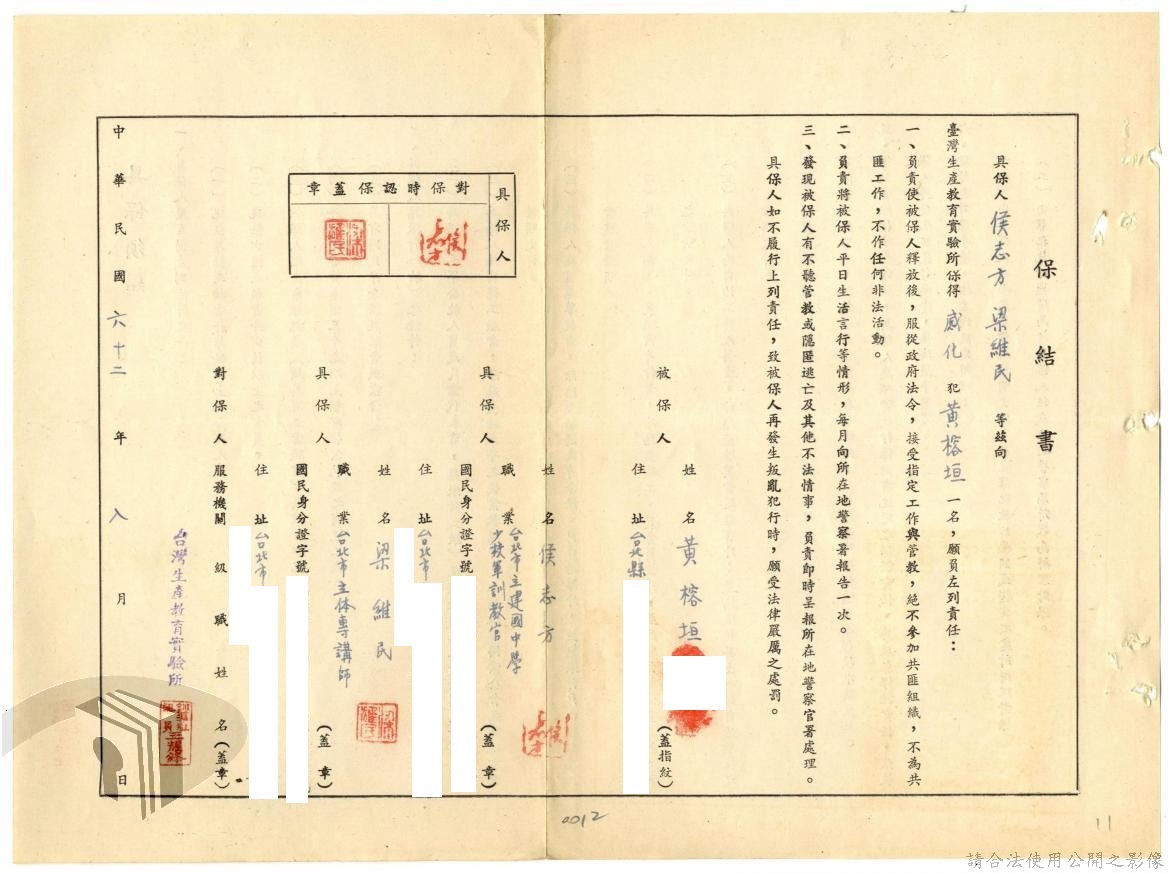 保結書
具保人 侯志方 梁維民 等茲向
臺灣生產教育實驗所保得 感化 犯 黃榕垣 一名，願負左列責任：
一、負責使被保人釋放後，服從政府法令，接受指定工作與管教，絕不參加共匪組織，不為共
匪工作，不作任何非法活動。
二、負責將被保人平日生活言行等情形，每月向所在地警察署報告一次。
三、發現被保人有不聽管教或隱匿逃亡及其他不法情事，負責即時呈報所在地警察官署處理。
具保人如不履行上列責任，致被保人再發生叛亂犯行時，願受法律嚴厲之處罰。
被保人 姓名 黃榕垣 （蓋指紋）
住址 台北縣
具保人 姓名 侯志方
職業 台北市立建國中學
少校軍訓教官 （蓋章）
國民身分證字號
住址 台北市
姓名 梁維民
具保人 職業 台北市立体專講師 （蓋章）
國民身分證字號
住址 台北市
對保人 服務機關 級職 姓名（蓋章）
台灣生產教育實驗所
具保人
對保時認保蓋章
中華民國 六十二 年 八 月 日
0012
11
請合法使用公開之影像